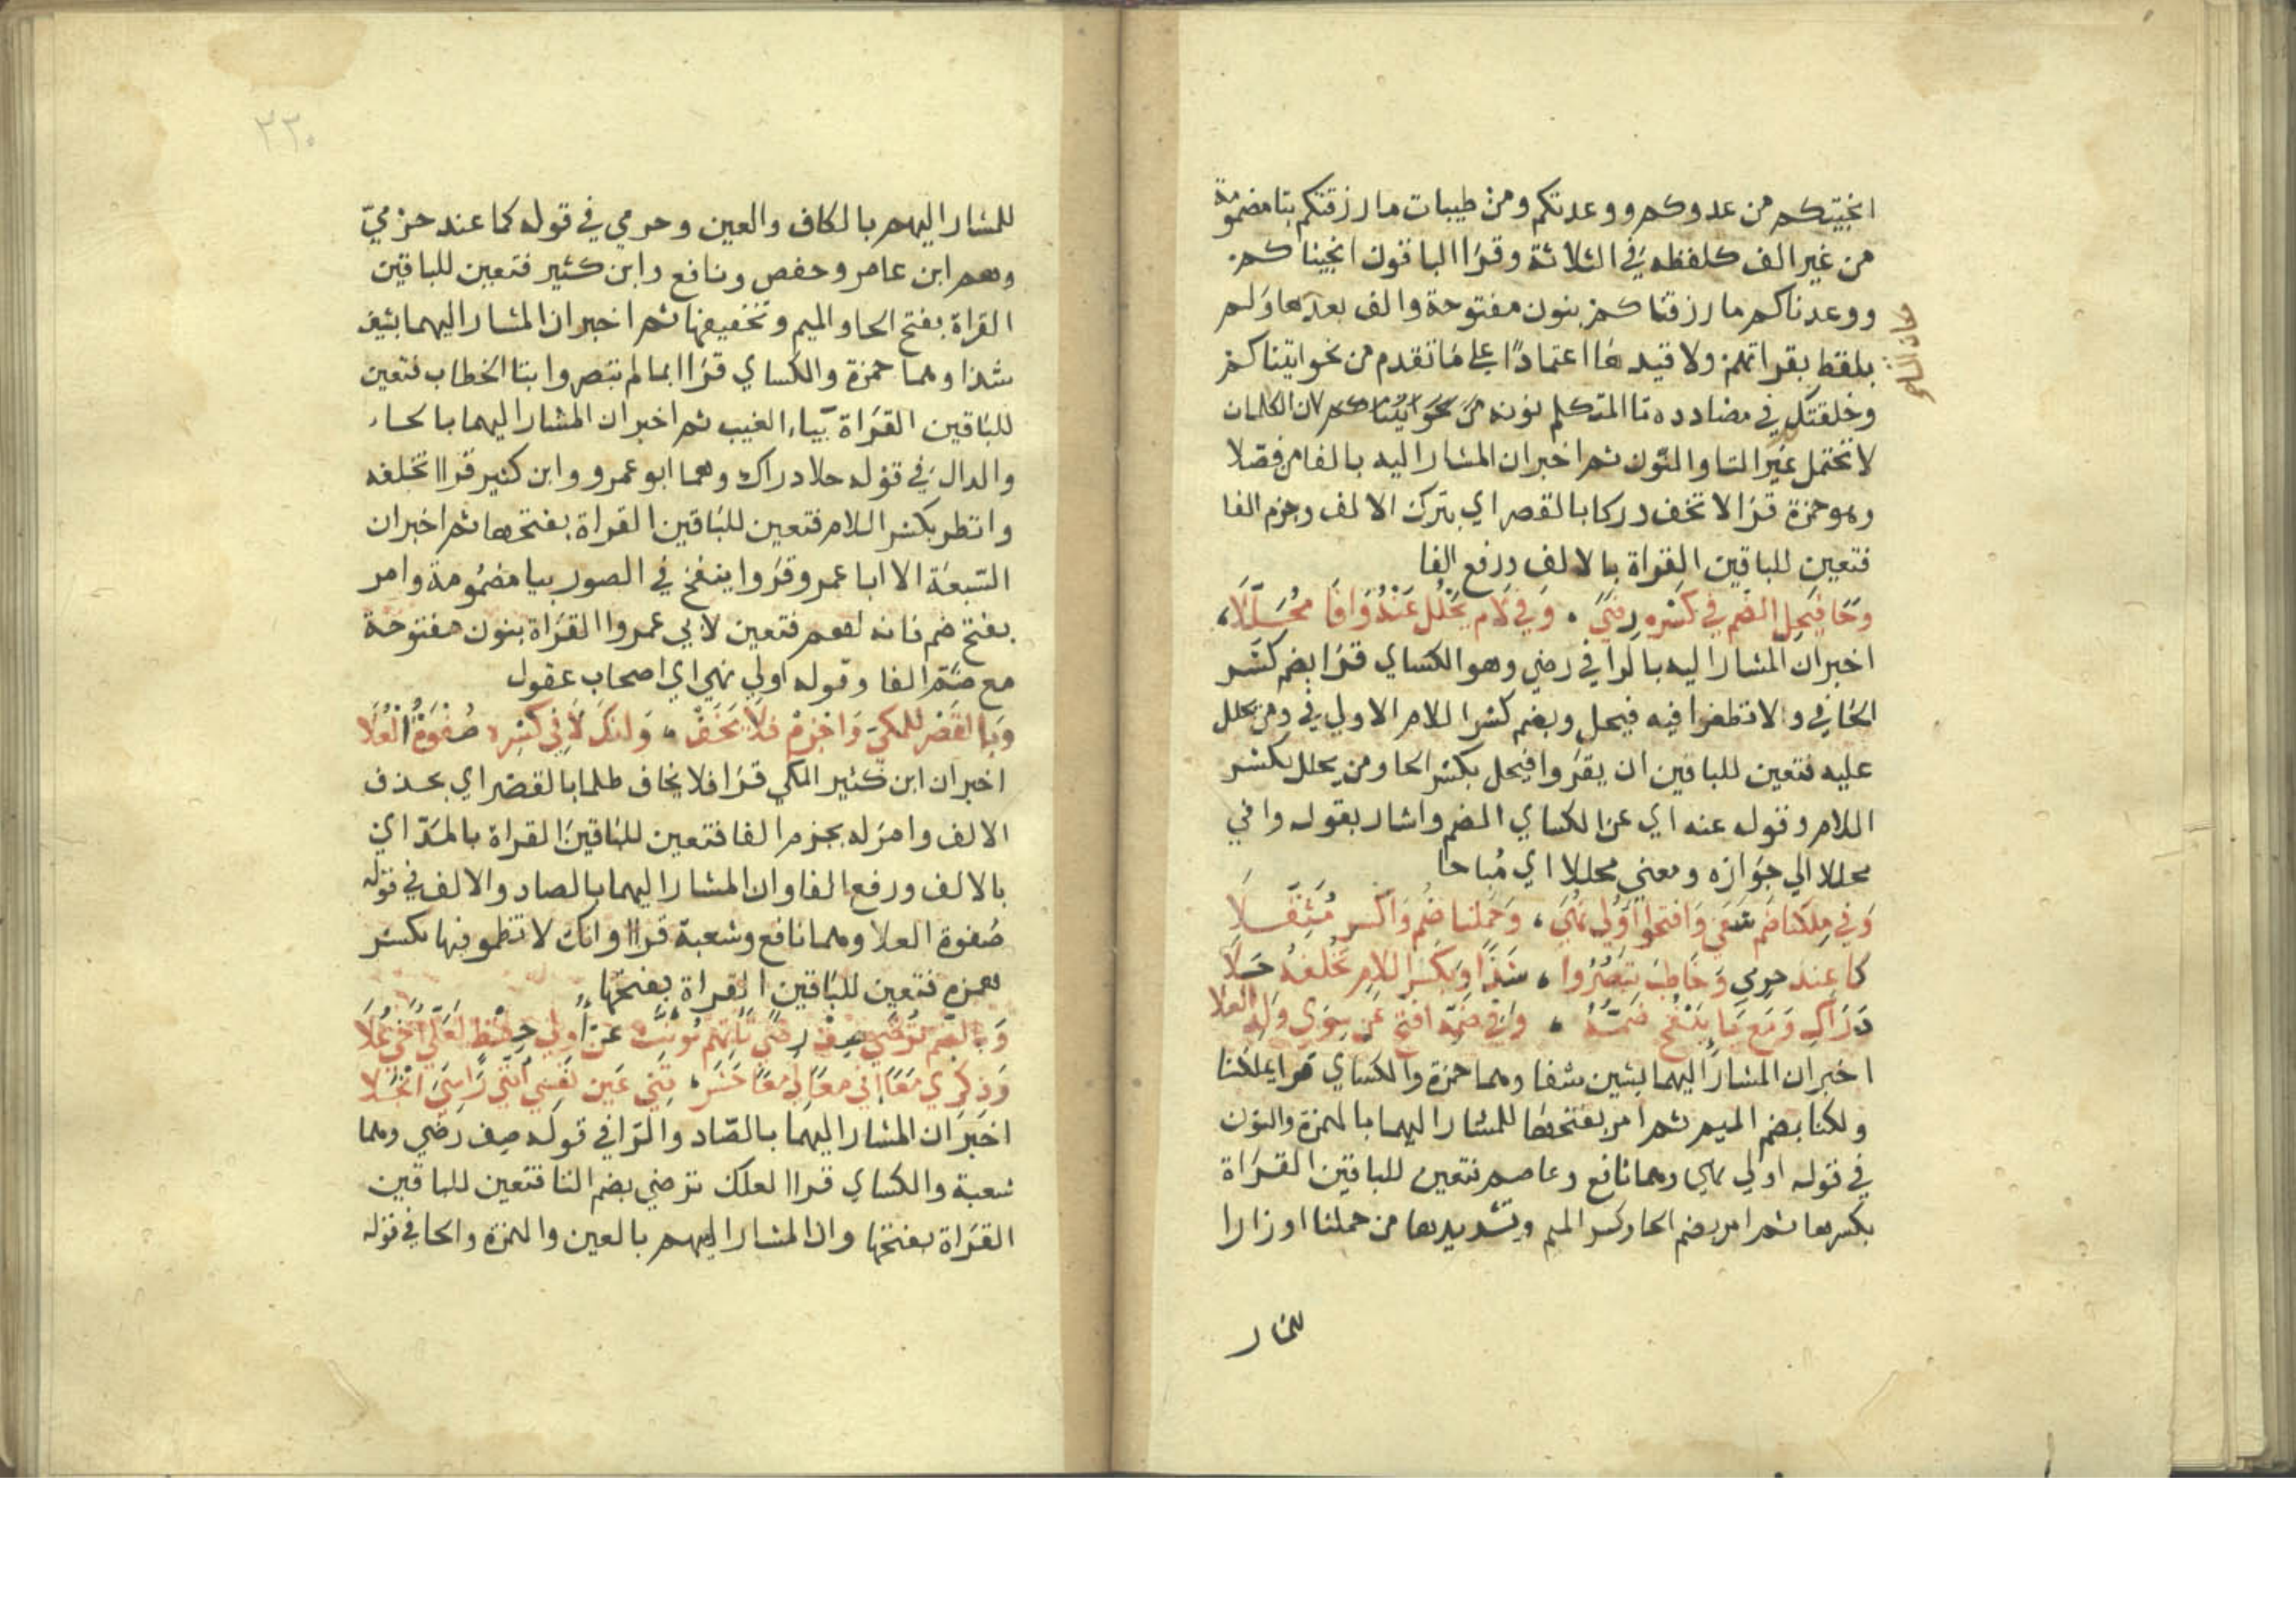 انجيتكم من عدوكم ووعدتكم ومن طيبات ما رزقتكم بتا مضمومة
من غير الف كلفظه في الثلاثة وقرا الباقون انجيناكم
ووعدناكم ما رزقناكم بنون مفتوحة والف بعدها ولم
يلفظ بقراتهم ولا قيدها اعتمادًا علي ما تقدم من نحو اتيناكم
وخلقتك في مضادده تا المتكلم بنونه من نحو اتيناكم لان الكلمات
لا تحتمل غير التا والنون ثم اخبر ان المشار اليه بالفا من فصلا
وهو حمزة قرا لا تخف دركا بالقصر اي بترك الالف وجزم الفا
فتعين للباقين القراة بالالف ورفع الفا
وَحَا فيَحِل الضم في كَسْره رِضَي وَفي لَام يَحْلُل عَنْهُ وَافَا مُحَلَّلَا
اخبر ان المشار اليه بالرا في رضي وهو الكساي قرا بضم كسر
الحا في ولا تطغوا فيه فيحل وبضم كسر اللام الاولي في ومن يحلل
عليه فتعين للباقين ان يقروا فيحل بكسر الحا ومن يحلل بكسر
اللام وقوله عنه اي عن الكساي الضم واشار بقوله وافي
محللا الي جوازه ومعني محللا اي مُباحا
وَفي مِلكنا ضَم شفَي وَافتحوا اوُلي نُهَي وَحَملنا ضُم وَاكسر مُثَقَّلَا
كما عِند حرمي وَخَاطب تبَصُرُوا شَذًا وَبكَسْر اللام تُخْلفهُ حَلَا
دَرَاكِ وَمَع يَا بنَنْفُخ ضَمُّهُ وفي ضَمّه افتَح عَن سِوَي وَلَدِ العلا
اخبر ان المشار اليهما بشين شفا وهما حمزة والكساي قرا بملكنا
ولكنا بضم الميم ثم امر بفتحها للمشار اليهما بالهمزة والنون
في قوله اولي نهي وهما نافع وعاصم فتعين للباقين القراة
بكسرها ثم امر بضم الحا وكسر الميم وتشديدها من حملنا اوزارا
للمشار
٢٣٠
للمشار اليهم بالكاف والعين وحرمي في قوله كما عند حرميّ
وهم ابن عامر وحفص ونافع وابن كثير فتعين للباقين
القراة بفتح الحا والميم وتخفيفها ثم اخبر ان المشار اليهما بشين
شذا وهما حمزة والكساي قرا ابما لم تبصروا بتا الخطاب فتعين
للباقين القراة بيَاء الغيب ثم اخبر ان المشار اليهما بالحاء
والدال في قوله حلا دراك وهما ابو عمرو وابن كثير قراا تخلفه
وانظر بكسر اللام فتعين للباقين القراة بفتحها ثم اخبر ان
السّبعَة الا ابا عمرو قروا ينفخ في الصور بيا مضمُومة وامر
بفتح ضم فائه لهم فتعين لابي عمرو القراة بنون مفتوحة
مع ضَم الفا وقوله اولي نهي اي اصحاب عقول
وَبا القَصْر للمكي وَاجْزِمْ فلا يَخَفْ وَانكَ لا في كَسْره صُفْوَةُ الْعُلَا
اخبر ان ابن كثير المكي قرا فلا يخاف ظلما بالقصر اي بحذف
الالف وامَر له بجزم الفا فتعين للباقين القراة بالمَدّ اي
بالالف ورفع الفا وان المشار اليهما بالصاد والالف في قوله
صُفوة العلا وهما نافع وشعبة قراا وانك لا تظمو فيها بكسر
همزه فتعين للباقين القراة بفتحها
وَبالضم تُرْضَي صِفْ رِضًي يَاتِهم مُونَّثٌ عَنْ اولي حِفْظ لَعَلّي اَخي حُلَا
وَذِكري مَعًا اني معًا لي معًا حَشَر تَني عَين نَفسي انني رَاسيَ انْجَلا
اخبَر ان المشار اليهما بالصّاد والرّا في قوله صِف رضي وهما
شعبة والكساي قراا لعلك ترضي بضم التا فتعين للباقين
القَراة بفتحها وان المشار اليهم بالعين والهمزة والحا في قوله